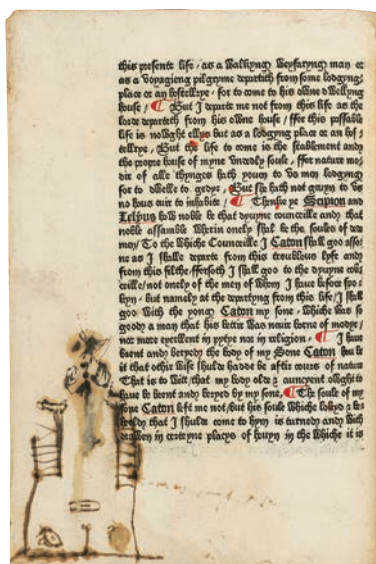 this presente life, as a Walkyng Weyfaryng man or
as a voyagieng pilgryme departith from some lodgyng
place or an hostellrye, for to come to his owne dwellyng
house / ¶ But I departe me not from this life as the
lorde departeth from his owne house / ffor this passable
life is nowght ellys but as a lodgyng place or an hos
tellrye, But the life to come is the stablement and
the propre house of myne vndedly soule, ffor nature mo-
dir of alle thynges hath youen to vs men lodgyng
for to dwelle to gedyr, But she hath not geuyn to vs
no hous euir to inhabite / ¶ Thynke ye Scipion and
Lelyus how noble be that dyuyne counceille and that
noble assemble Wherin onely shal be the soules of ded
men / To the whiche Counceille I Caton shall goo asso-
ne as I shalle departe from this troublous lyfe and
from this filthe / fforsoth I shall goo to the dyuyne coun
ceille / not onely of the men of whom I haue before spo-
kyn, but namely at the departyng from this life / I shall
goo With the yong Caton my sone, Whiche was so
goode a man that his bettir Was neuir borne of modyr /
nor more excellent in pytye nor in religion, ¶ I haue
brent and beryed the body of my Sone Caton how be
it that other wise shulde hadde be aftir cours of nature
That is to wite / that my body olde & auncyent owght to
haue be brent and beryed by my sone, ¶ The soule of my
sone Caton left me not / but his soule Whiche lokyd & be
holdy that I shulde come to hym is turnedy and With
drawen in certeyne places of heuyn in the whiche it is